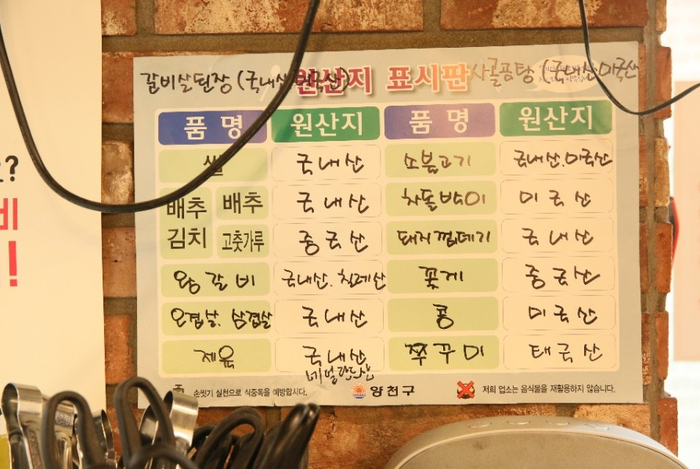 갈비살된장 (국내산 미국산)
원산지 표시판
사골곰탕 (국내산 미국산)
품 명 원산지 품 명 원산지
쌀 국내산 소불고기 국내산.미국산
배추김치 배추 국내산 차돌박이 미국산
고춧가루 중국산 돼지껍데기 국내산
왕갈비 국내산. 칠레산 꽃게 중국산
오겹살, 삼겹살 국내산 콩 미국산
제육 국내산 쭈꾸미 태국산
네덜란드산
손씻기 실천으로 식중독을 예방합시다. 양천구 저희 업소는 음식물을 재활용하지 않습니다.
?
비
!